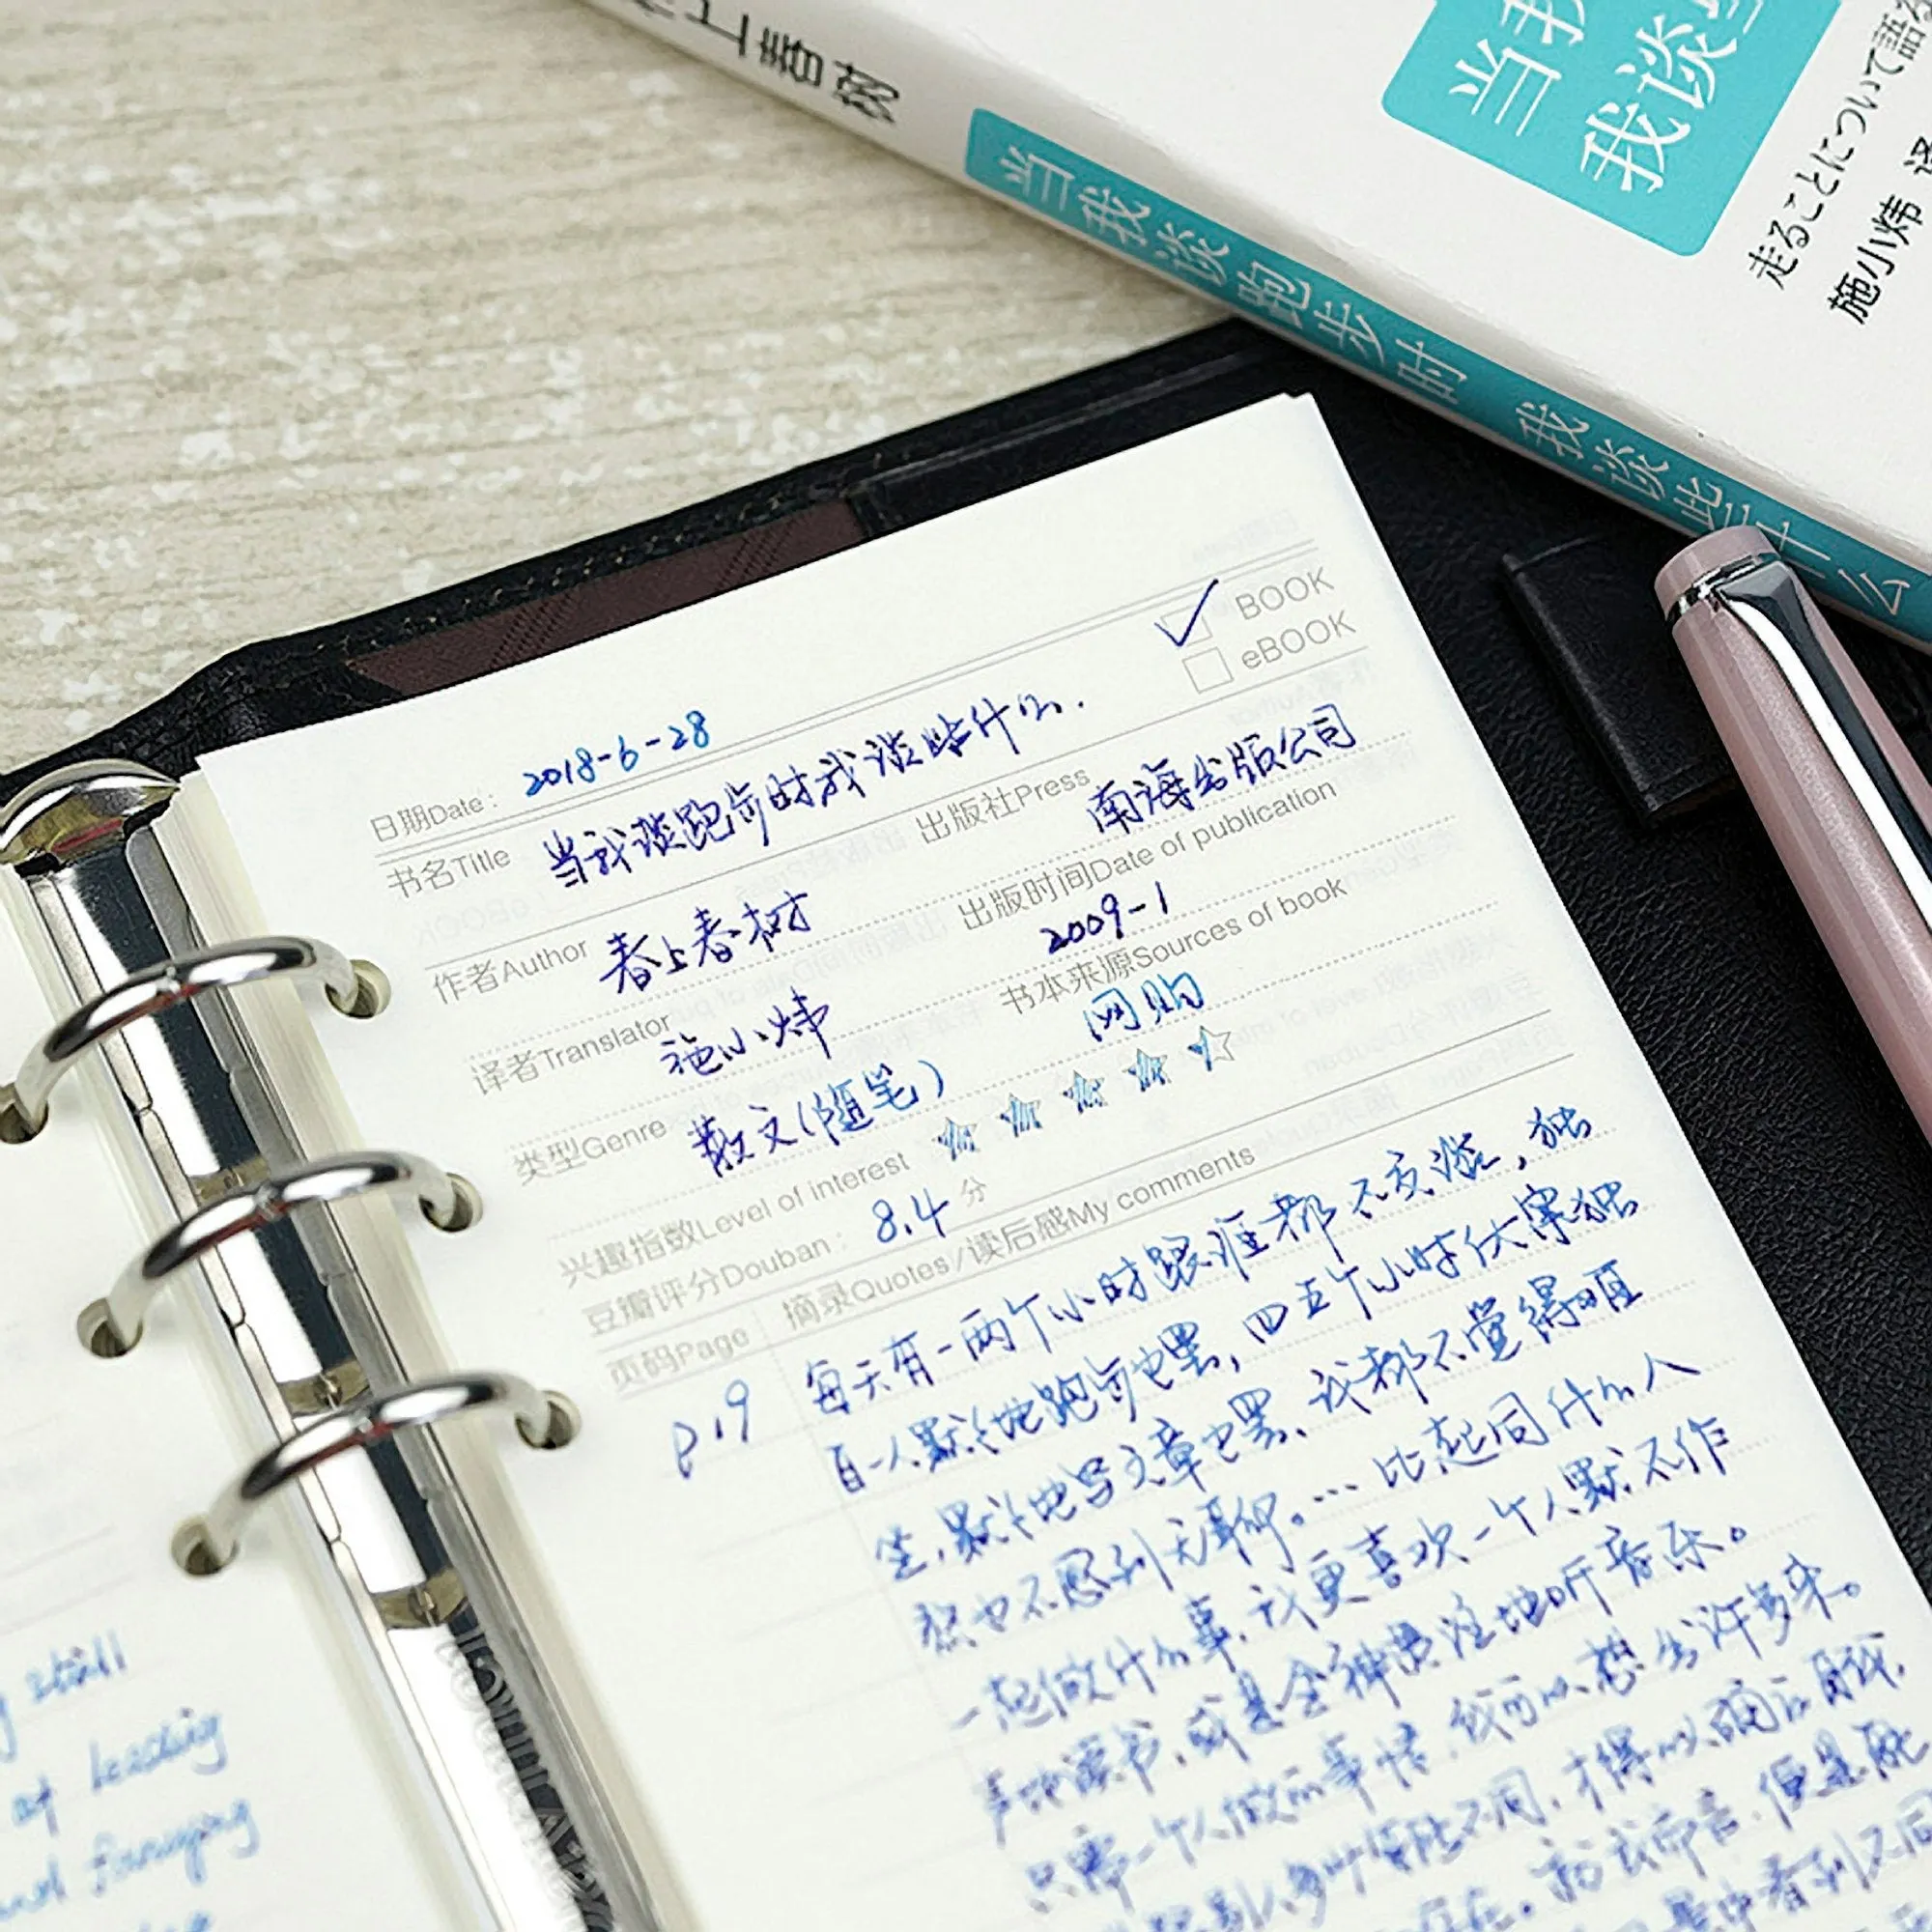 上春树
当我谈跑步时 我谈些什么
当我
我谈
走ることについて語る
施小炜 译
BOOK
eBOOK
日期Date： 2018-6-28
书名Title 当我谈跑步时我谈些什么.
作者Author 春上春树
出版社Press 南海出版公司
译者Translator 施小炜
出版时间Date of publication 2009-1
类型Genre 散文(随笔)
书本来源Sources of book 网购
兴趣指数Level of interest
豆瓣评分Douban： 8.4 分
页码Page 摘录Quotes/读后感My comments
P19 每天有一两个小时跟谁都不交谈，独
自一人默默地跑步也罢，四五个小时伏案独
坐，默默地写文章也罢、我都不觉得
也不感到无聊。…比起同什么人
一起做什么事，我更喜欢一个人默不作
声地读书，或是全神贯注地听音乐。
只需一个人做的事情，我可以想出许多来。
不同，才得以确立自我，
就我而言，便是能
中看到不同
still
at
and